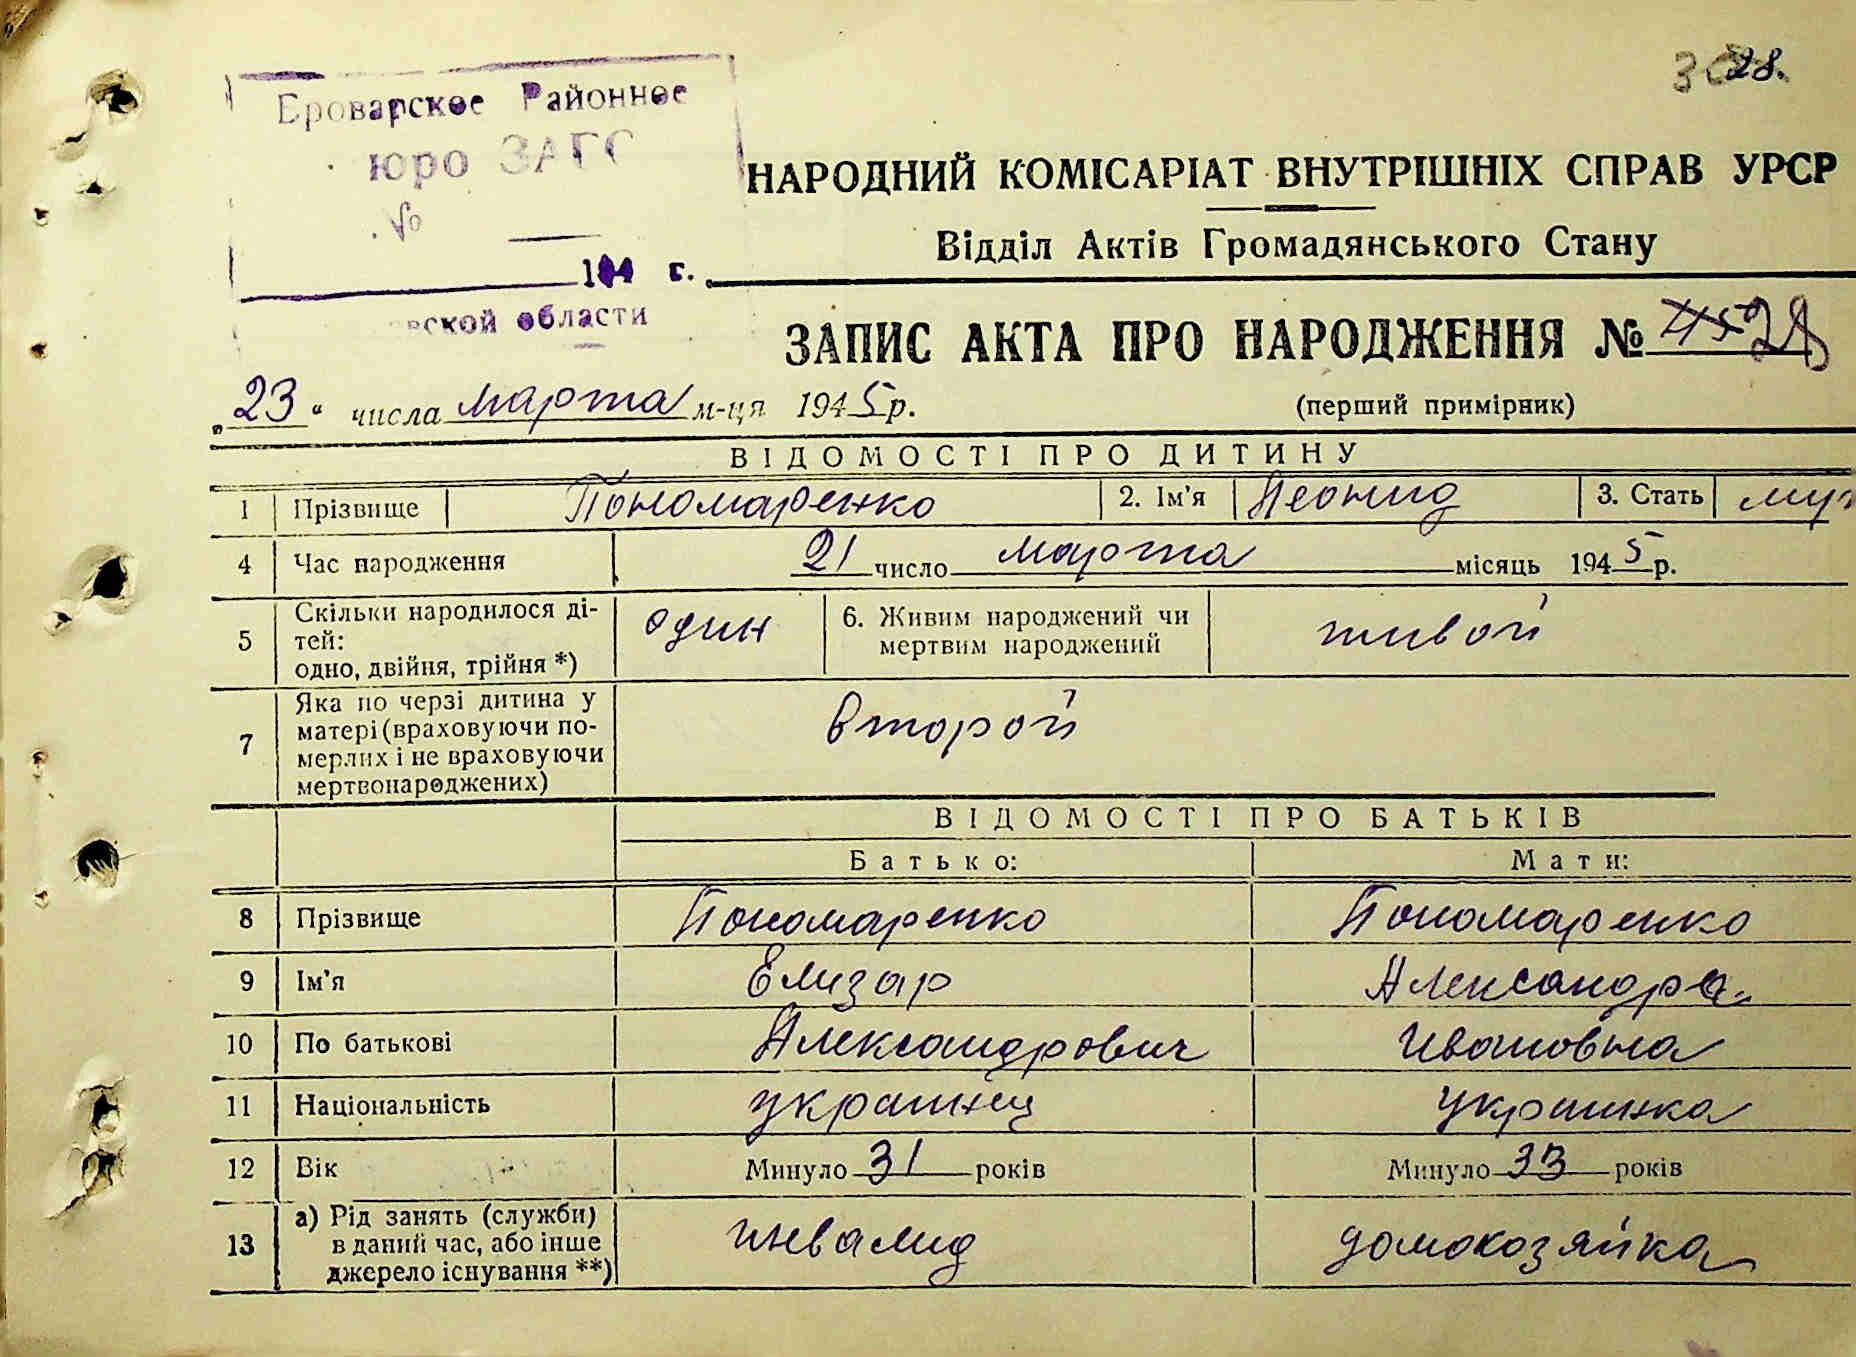 28.
Броварское Районное
юро ЗАГС
№
194 г.
вской области
НАРОДНИЙ КОМІСАРІАТ ВНУТРІШНІХ СПРАВ УРСР
Відділ Актів Громадянського Стану
ЗАПИС АКТА ПРО НАРОДЖЕННЯ № 28
„23“ числа марта м-ця 1945 р.
(перший примірник)
ВІДОМОСТІ ПРО ДИТИНУ
1 Прізвище Пономаренко 2. Ім'я Леонид 3. Стать муж
4 Час народження 21 число марта місяць 1945 р.
5 Скільки народилося ді-
тей:
одно, двійня, трійня *) один 6. Живим народжений чи
мертвим народжений живой
7 Яка по черзі дитина у
матері (враховуючи по-
мерлих і не враховуючи
мертвонароджених) второй
ВІДОМОСТІ ПРО БАТЬКІВ
Батько: Мати:
8 Прізвище Пономаренко Пономаренко
9 Ім'я Елизар Александра
10 По батькові Александрович Ивановна
11 Національність украинец украинка
12 Вік Минуло 31 років Минуло 33 років
13 а) Рід занять (служби)
в даний час, або інше
джерело існування **) инвалид домохозяйка